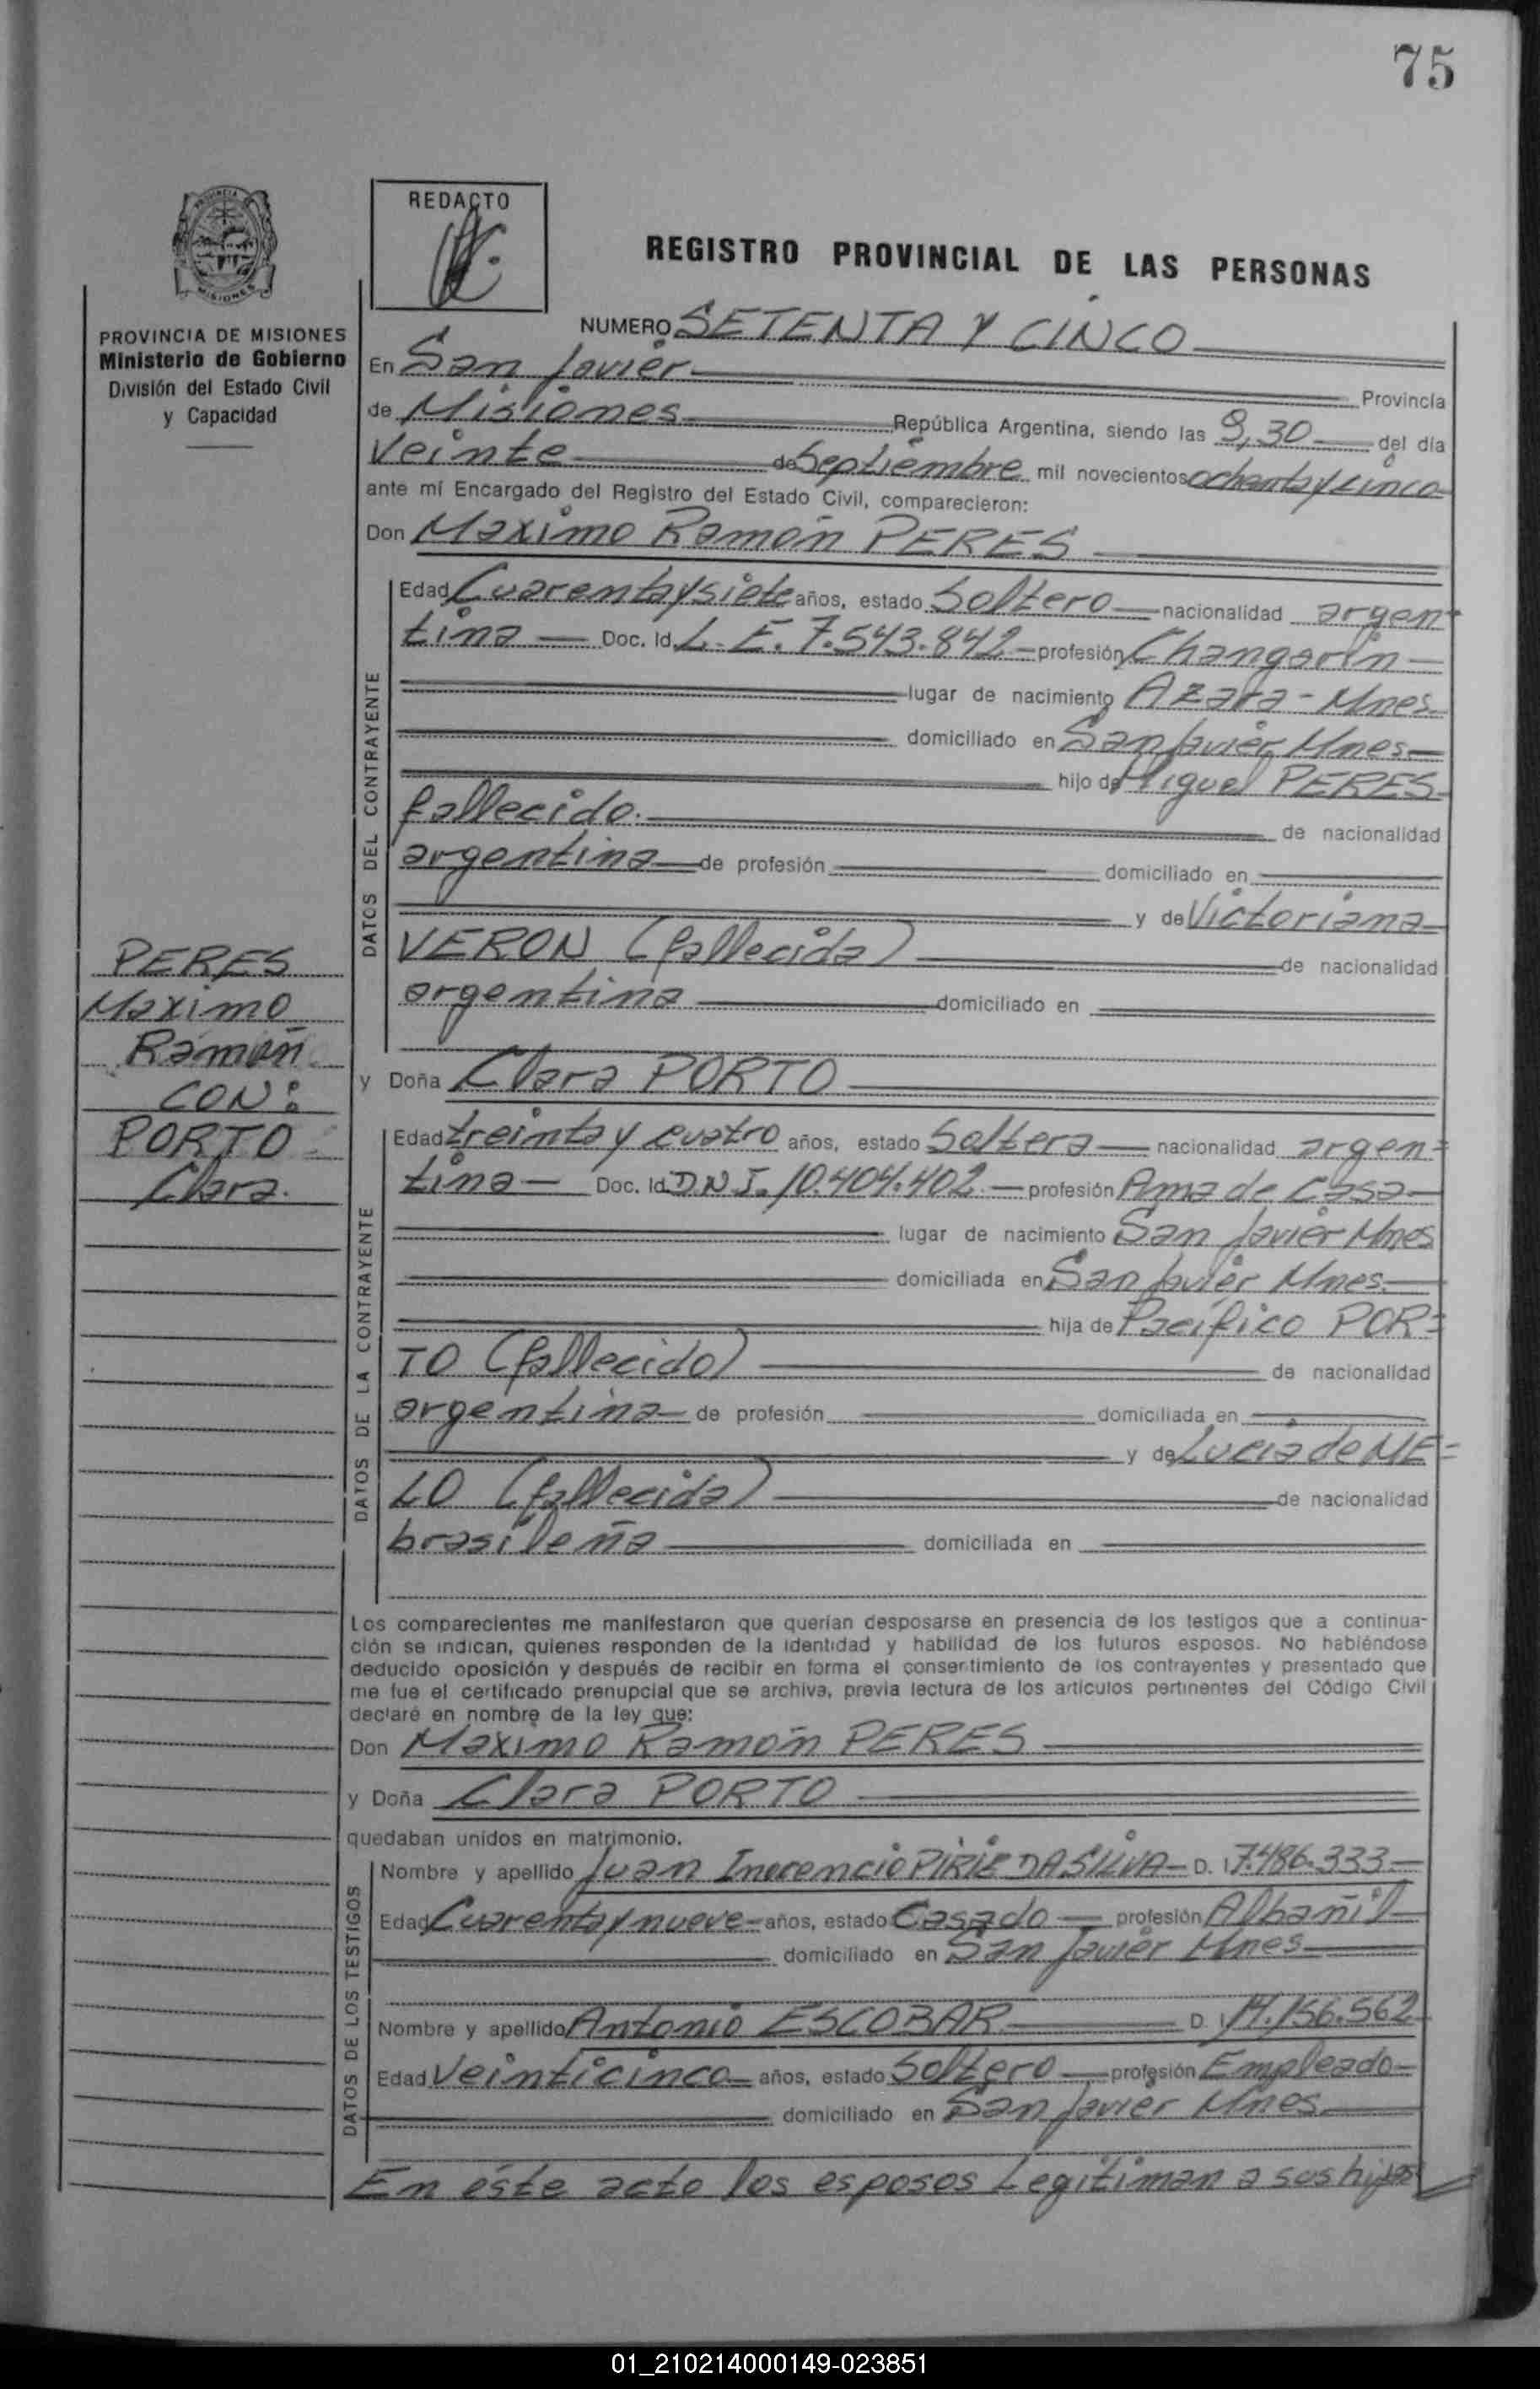 75
REDACTO
REGISTRO PROVINCIAL DE LAS PERSONAS
PROVINCIA DE MISIONES
Ministerio de Gobierno
División del Estado Civil
y Capacidad
NUMERO SETENTA Y CINCO
En San Javier Provincia
de Misiones República Argentina, siendo las 9,30 del día
Veinte de Septiembre mil novecientos ochenta y cinco
ante mí Encargado del Registro del Estado Civil, comparecieron:
Don Maximo Ramón PERES
DATOS DEL CONTRAYENTE
Edad Cuarenta y siete años, estado Soltero nacionalidad argen-
tina Doc. Id. L. E. 7.543.842 profesión Changarin
lugar de nacimiento Azara - Mnes.
domiciliado en San Javier Mnes
hijo de Miguel PERES
fallecido. de nacionalidad
argentina de profesión domiciliado en
y de Victoriana
VERON (fallecida) de nacionalidad
argentina domiciliado en
PERES
Maximo
Ramón
CON:
PORTO
Clara.
y Doña Clara PORTO
DATOS DE LA CONTRAYENTE
Edad treinta y cuatro años, estado Soltera nacionalidad argen=
tina Doc. Id. D.N.I. 10.404.402 profesión Ama de Casa
lugar de nacimiento San Javier Mnes
domiciliada en San Javier Mnes.
hija de Pacífico POR=
TO (fallecido) de nacionalidad
argentina de profesión domiciliada en
y de Lucia de ME=
LO (fallecida) de nacionalidad
brasileña domiciliada en
Los comparecientes me manifestaron que querían desposarse en presencia de los testigos que a continua-
ción se indican, quienes responden de la identidad y habilidad de los futuros esposos. No habiéndose
deducido oposición y después de recibir en forma el consentimiento de los contrayentes y presentado que
me fue el certificado prenupcial que se archiva, previa lectura de los artículos pertinentes del Código Civil
declaré en nombre de la ley que:
Don Maximo Ramón PERES
y Doña Clara PORTO
quedaban unidos en matrimonio.
DATOS DE LOS TESTIGOS
Nombre y apellido Juan Inocencio PIRIE DA SILVA D. I. 7.486.333
Edad Cuarenta y nueve años, estado Casado profesión Albañil
domiciliado en San Javier Mnes
Nombre y apellido Antonio ESCOBAR D. I. 14.156.562
Edad Veinticinco años, estado Soltero profesión Empleado
domiciliado en San Javier Mnes
En éste acto los esposos Legitiman a sus hijos
01_210214000149-023851